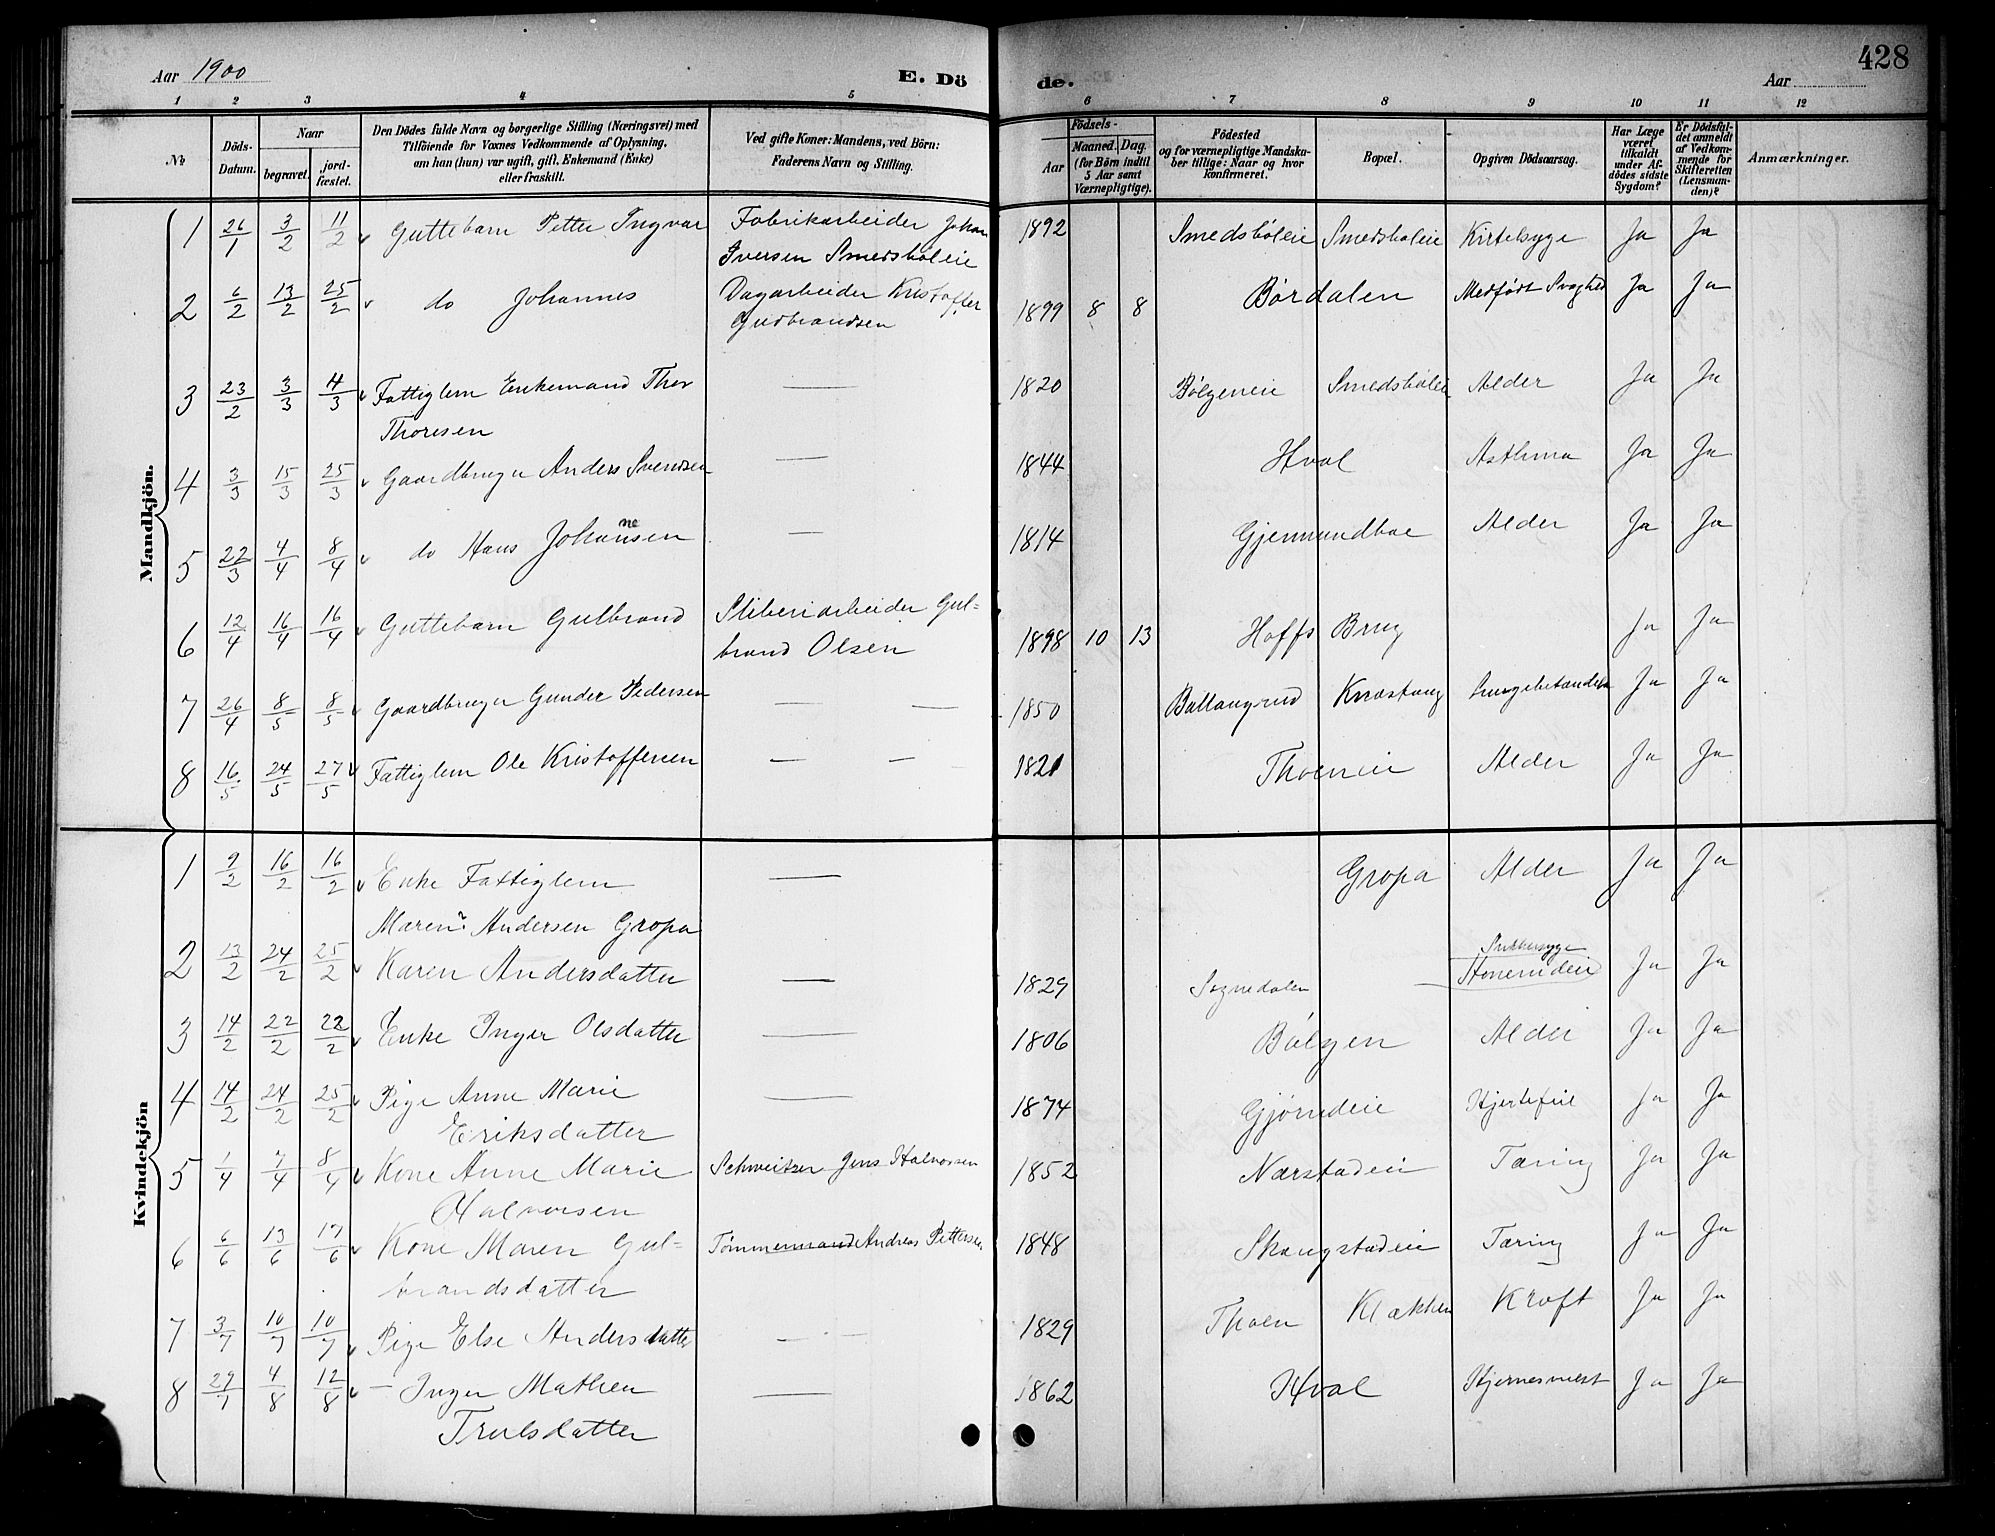 428
Aar 1900
E. Dö
de.
Aar
1 2 3 4 5 6 7 8 9 10 11 12
No
Döds-Datum.
Naar
begravet.
jord-fæstet.
Den Dödes fulde Navn og borgerlige Stilling (Næringsvei) med
Tilföiende for Voxnes Vedkommende af Oplysning,
om han (hun) var ugift, gift, Enkemand (Enke)
eller fraskilt.
Ved gifte Koner: Mandens, ved Börn:
Faderens Navn og Stilling.
Födsels-
Aar
Maaned. Dag.
(for Börn indtil
5 Aar samt
Værnepligtige).
Födested
og for værnepligtige Mandska-
ber tillige: Naar og hvor
konfirmeret.
Bopæl.
Opgiven Dödsaarsag.
Har Læge
været
tilkaldt
under Af-
dödes sidste
Sygdom?
Er Dödsfal-
det anmeldt
af Vedkom-
mende for
Skifteretten
(Lensman-
den)?
Anmærkninger.
Mandkjön.
1 26/1 3/2 11/2 Guttebarn Petter Ingvar Fabrikarbeider Johan 1892 Smedsböleie Smedsböleie Kirtelsyge Ja Ja
Iversen Smedsböleie
2 6/2 13/2 25/2 do Johannes Dagarbeider Kristoffer 1899 8 8 Børdalen Medfödt Svaghed Ja Ja
Gudbrandsen
3 23/2 3/3 4/3 Fattiglem Enkemand Thor — 1820 Bölgeneie Smedsböleie Alder Ja Ja
Thoresen
4 3/3 15/3 25/3 Gaardbruger Anders Svendsen — 1844 Hval Asthma Ja Ja
5 22/3 4/4 8/4 do Hans Johannesen — 1814 Gjermundboe Alder Ja Ja
6 12/4 16/4 16/4 Guttebarn Gulbrand Sliberiarbeider Gul- 1898 10 13 Hoffs Brug Ja Ja
brand Olsen
7 26/4 8/5 8/5 Gaardbruger Gunder Pedersen — — 1850 Ballangrud Knæstang Lungebetændelse Ja Ja
8 16/5 24/5 27/5 Fattiglem Ole Kristoffersen — — 1821 Thoeneie Alder Ja Ja
Kvindekjön
1 9/2 16/2 16/2 Enke Fattiglem — Gropa Alder Ja Ja
Maren Andersen Gropa
2 13/2 24/2 25/2 Karen Andersdatter — 1829 Sognedalen Sukkersyge Ja Ja
3 14/2 22/2 22/2 Enke Inger Olsdatter — 1806 Bölgen Alder Ja Ja
4 14/2 24/2 25/2 Pige Anne Marie — 1874 Gjörudeie Hjertefeil Ja Ja
Eriksdatter
5 1/4 7/4 8/4 Kone Anne Marie Schweitser Jens Halvorsen 1852 Nærstadeie Tæring Ja Ja
Halvorsen
6 6/6 13/6 17/6 Kone Maren Gul- Tømmermand Andreas Pettersen 1848 Skougstadeie Tæring Ja Ja
brandsdatter
7 3/7 10/7 10/7 Pige Else Andersdatter — — 1829 Thoen Klækken Kræft Ja Ja
8 29/7 4/8 12/8 — Inger Mathea — 1862 Hval Ja Ja
Trulsdatter